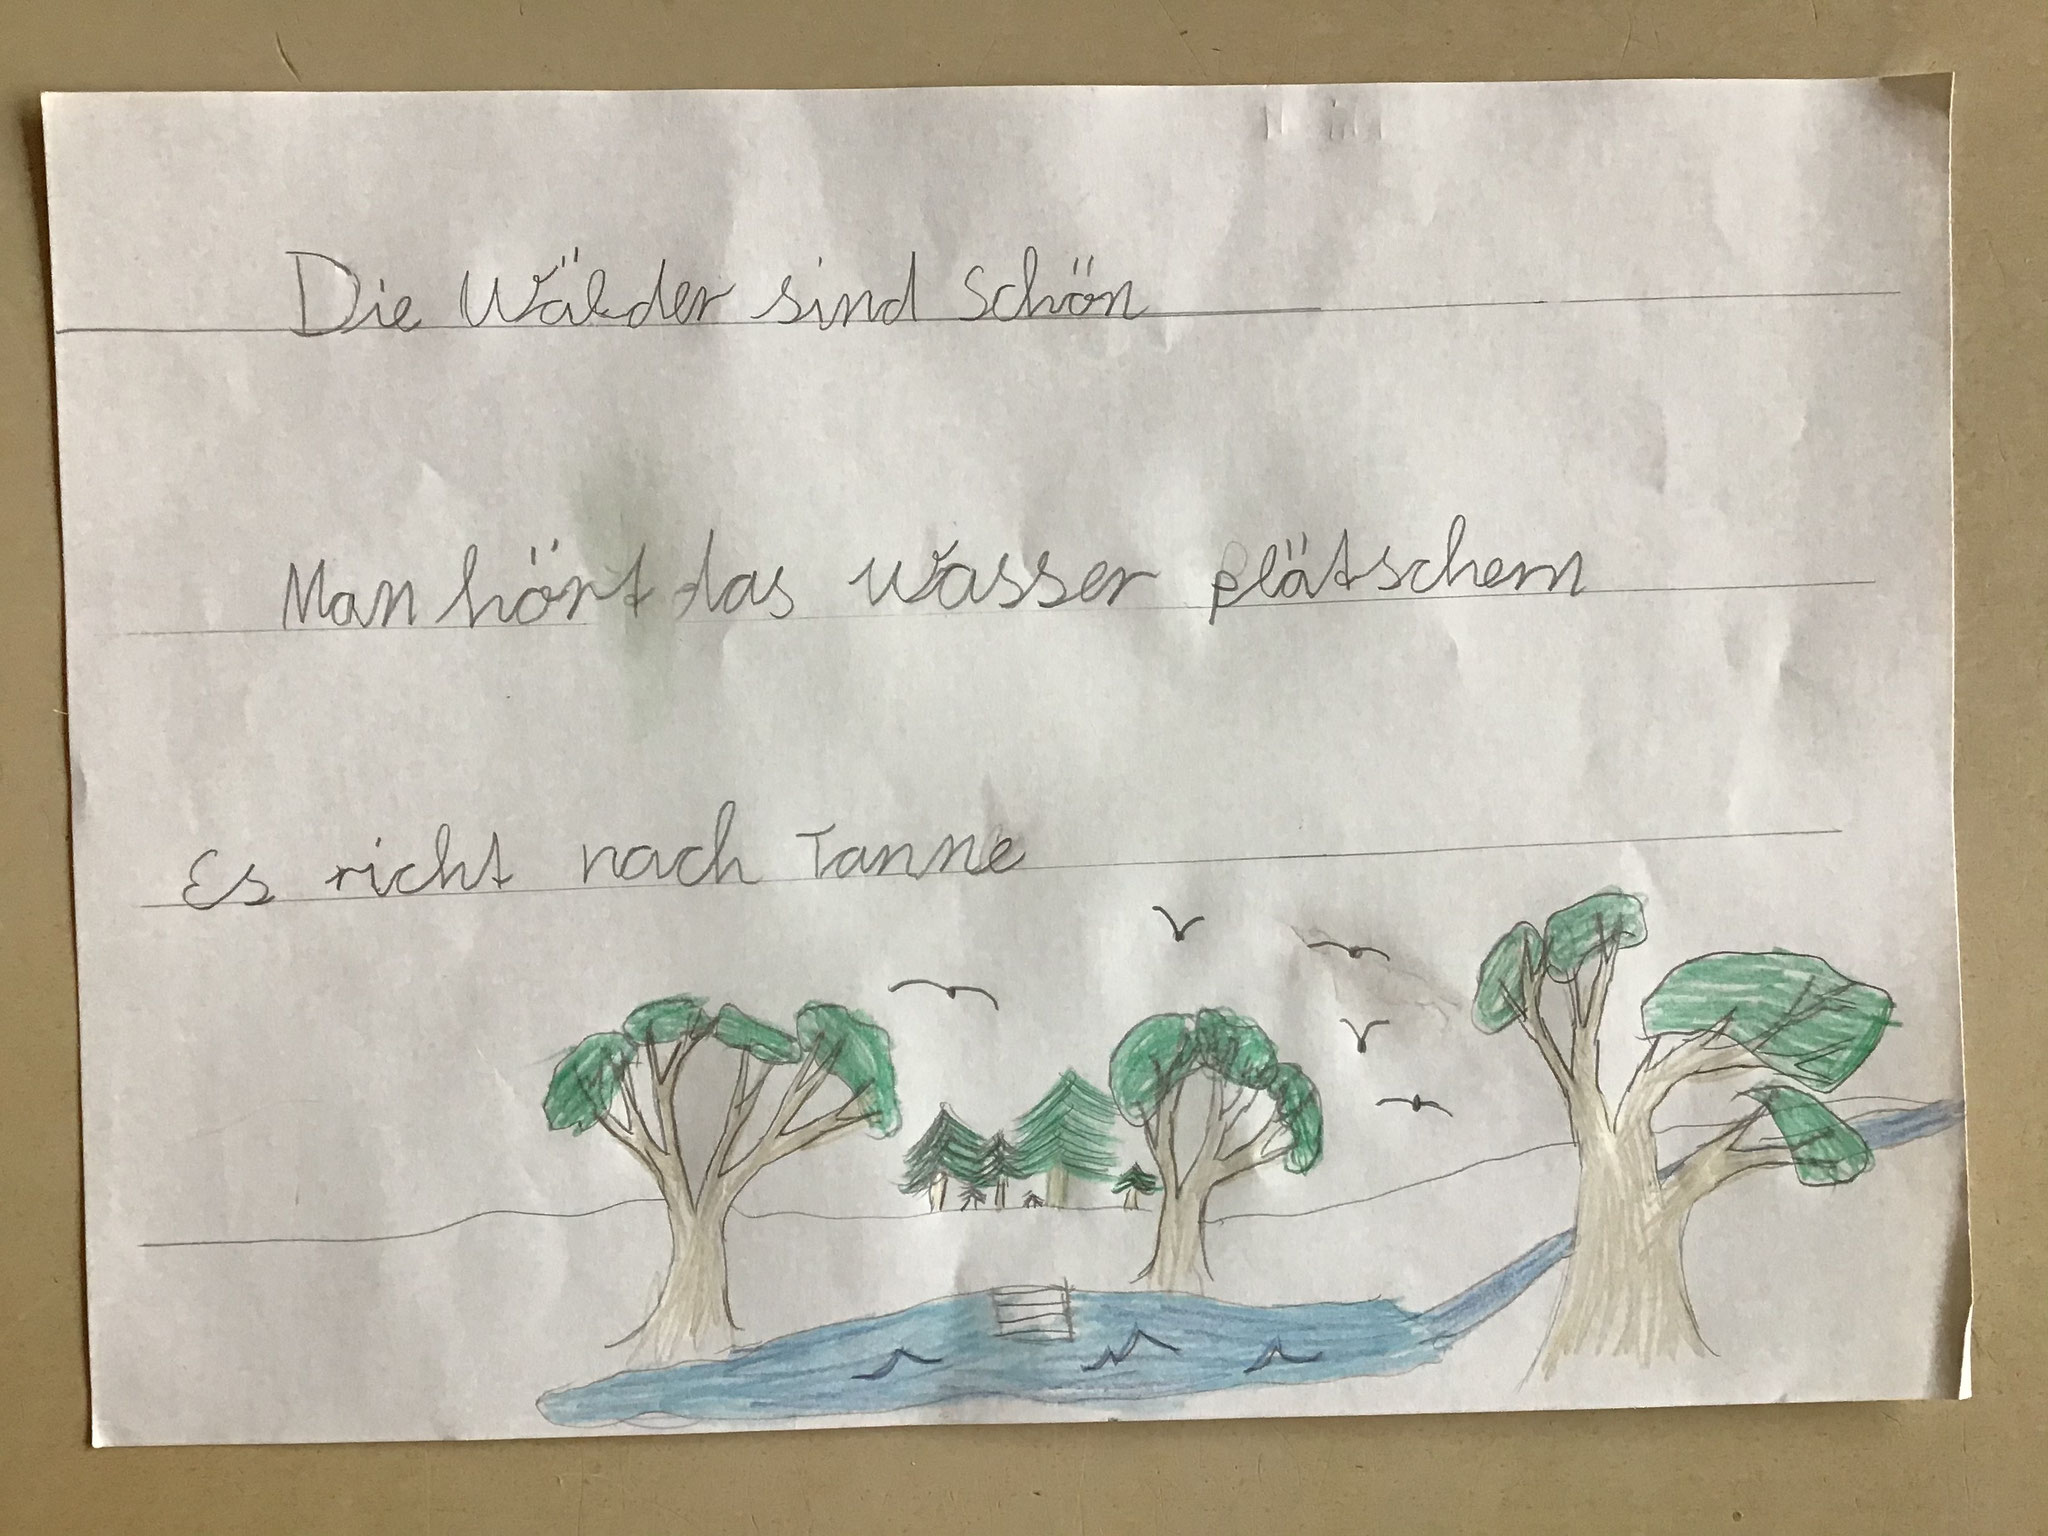 Die Wälder sind schön
Man hört das Wasser plätschern
Es richt nach Tanne